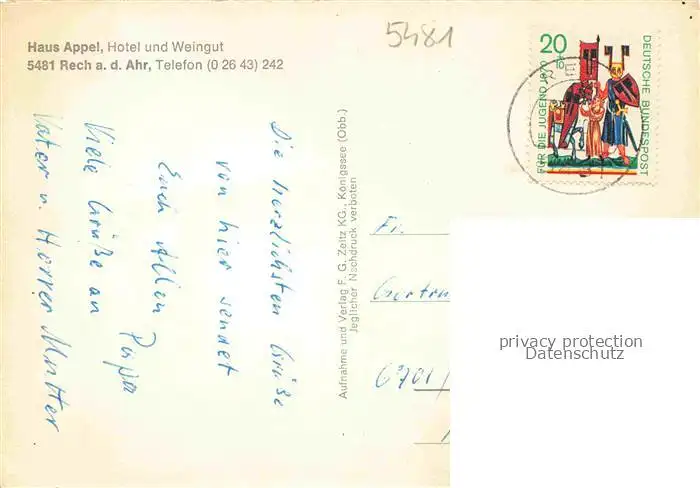 Haus Appel, Hotel und Weingut
5481 Rech a. d. Ahr, Telefon (0 26 43) 242
5481
20
+10
FÜR DIE JUGEND 1970
DEUTSCHE BUNDESPOST
Die herzlichsten Grüße
von hier sendet
Euch Allen Papa
Viele Grüße an
Vater u. Mutter
Aufnahme und Verlag F. G. Zeitz KG., Königssee (Obb.)
Jeglicher Nachdruck verboten
Fr.
Gertru
6701/
privacy protection
Datenschutz